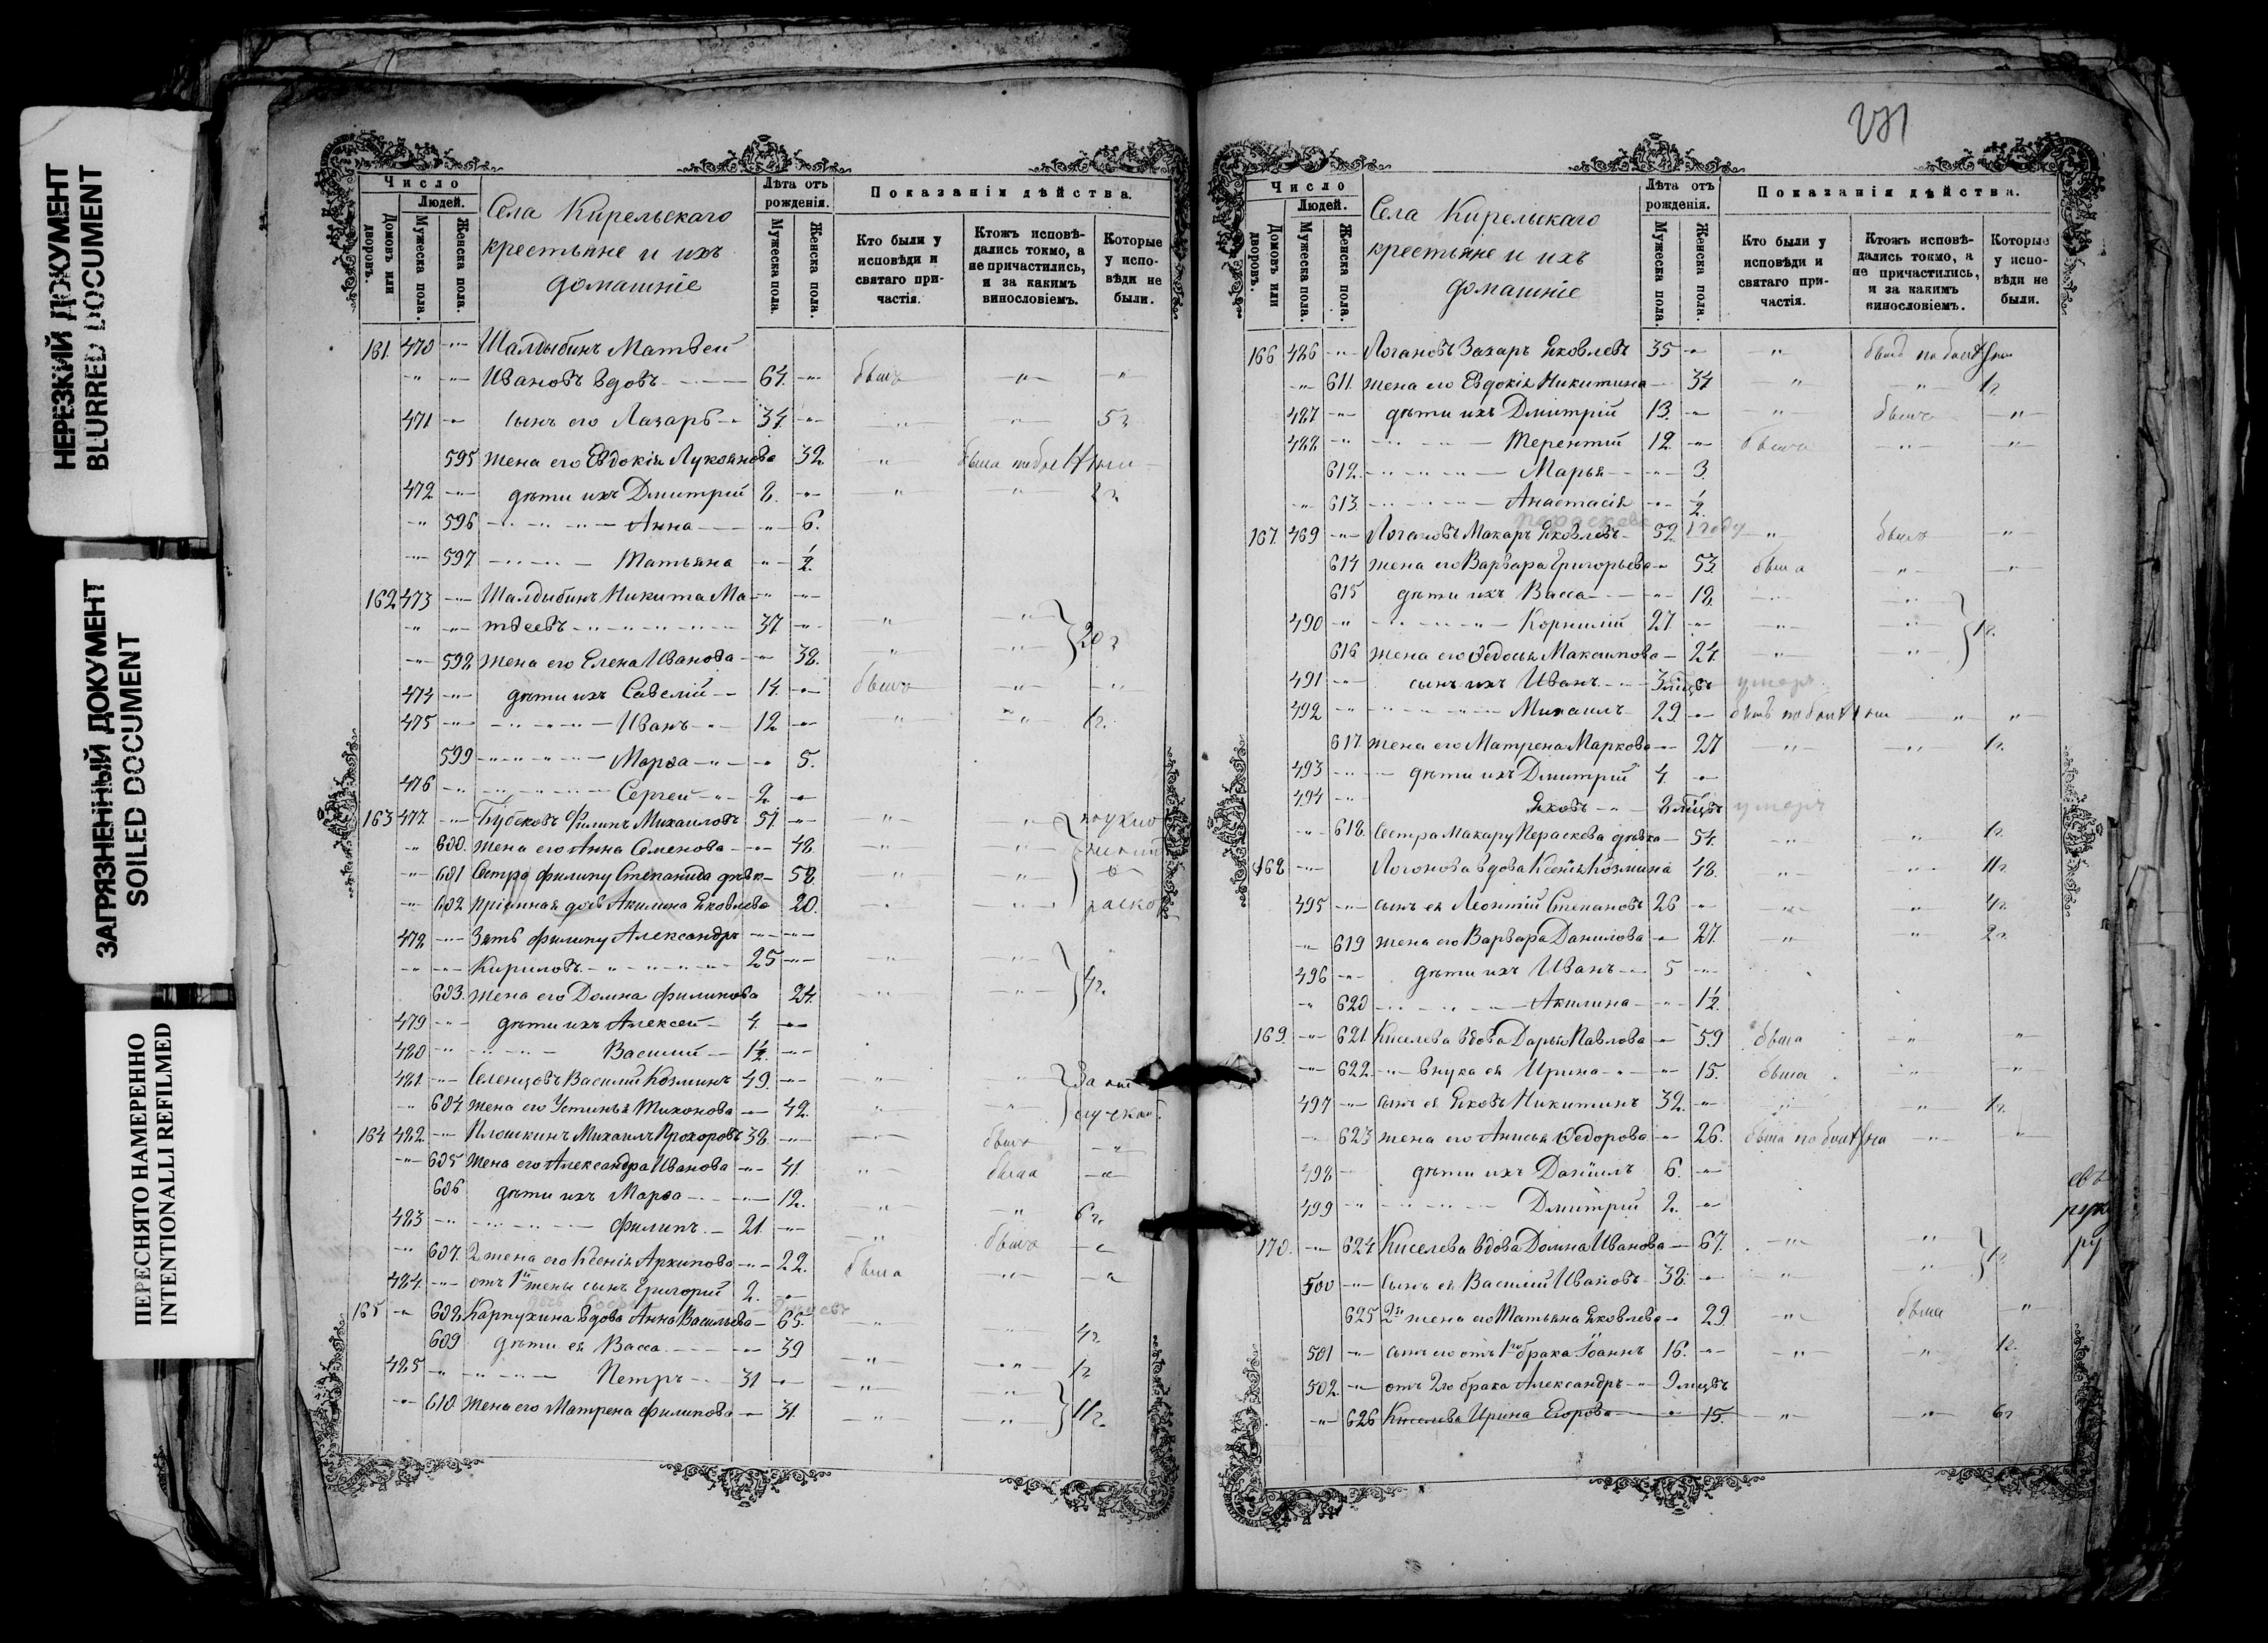 НЕРЕЗКИЙ ДОКУМЕНТ
BLURRED DOCUMENT
ЗАГРЯЗНЕННЫЙ ДОКУМЕНТ
SOILED DOCUMENT
ПЕРЕСНЯТО НАМЕРЕННО
INTENTIONALLI REFILMED
Число
Людей.
Домовъ или дворовъ.
Мужеска пола.
Женска пола.
Села Кирельскаго
крестьяне и ихъ
домашніе
Лѣта отъ рожденія.
Мужеска пола.
Женска пола.
Показанія дѣйства.
Кто были у исповѣди и святаго причастія.
Ктожъ исповѣдались токмо, а не причастились, и за какимъ винословіемъ.
Которые у исповѣди не были.
161. 470 Шалдыбинъ Матвей
Ивановъ вдовъ 64. былъ
471 сынъ его Лазарь 34. 5 г
595 жена его Евдокія Лукоянова 32. была
472 дѣти ихъ Дмитрій 8. 2 г
596 Анна 6.
597 Татьяна ½
162 473 Шалдыбинъ Никита Ма-
твеевъ 37. 20 г
598 жена его Елена Иванова 38.
474 дѣти ихъ Савелій 14. былъ
475 Иванъ 12 1 г.
599 Марѳа 5.
476 Сергей 2.
163 477. Бубековъ Филипъ Михаиловъ 51.
600. жена его Анна Семенова 48
601 Сестра Филипу Степанида дѣвк 58
602 пріемная дочь Акилина Яковлева 20.
478 Зять Филипу Александръ
Кириловъ 25
603. жена его Домна Филипова 24. 4 г.
479 дѣти ихъ Алексей 4.
480 Василий 1½
481 Селенцовъ Василий Козминъ 49.
604. жена его Устинья Тихонова 42.
164 482. Плошкинъ Михаилъ Прохоровъ 38. былъ
605 жена его Александра Иванова 41 была
606 дѣти ихъ Марѳа 12.
483 Филипъ 21. былъ 6 г.
607. 2 жена его Ксенія Архипова 22. была
484 отъ 1й жены сынъ Григорій 2.
165 608. Карпухина вдова Анна Васильева 65.
609 дѣти ея Васса 39 4 г
485 Петръ 31 1 г
610 жена его Матрена Филипова 31. 11 г.
Число
Людей.
Домовъ или дворовъ.
Мужеска пола.
Женска пола.
Села Кирельскаго
крестьяне и ихъ
домашніе
Лѣта отъ рожденія.
Мужеска пола.
Женска пола.
Показанія дѣйства.
Кто были у исповѣди и святаго причастія.
Ктожъ исповѣдались токмо, а не причастились, и за какимъ винословіемъ.
Которые у исповѣди не были.
166 486 Логановъ Захаръ Яковлевъ 35
611. жена его Евдокія Никитина 34 1 г.
487 дѣти ихъ Дмитрій 13. былъ
488 Терентій 12. былъ
612. Марья 3
613. Анастасія ½
Пераскева 1 году
167. 469 Логановъ Макаръ Яковлевъ 52. былъ
614 жена его Варвара Григорьева 53. была
615 дѣти ихъ Васса 18.
490 Корнилій 27. 1 г.
616 жена его Ѳедосья Максимова 24.
491 сынъ ихъ Иванъ 3 мцвъ умеръ
492 Михаилъ 29.
617. жена его Матрена Маркова 27 1 г.
493 дѣти ихъ Дмитрий 4.
494 Яковъ 2 мцвъ умеръ
618. Сестра Макару Пераскева дѣвка 54. 1 г.
168 Логонова вдова Ксенія Козмина 48. 11 г.
495 сынъ ея Леонтій Степановъ 26 4 г.
619 жена его Варвара Данилова 27. 2 г.
496 дѣти ихъ Иванъ 5
620 Акилина 1½
169. 621 Киселева вдова Дарья Павлова 59 была
622. внука ея Ирина 15. была
497 сынъ ея Яковъ Никитинъ 32. 1 г.
623 жена его Анисья Ѳедорова 26. была
498 дѣти ихъ Даніилъ 6.
499 Дмитрій 2.
170. 624 Киселева вдова Домна Иванова 67.
500 сынъ ея Василій Ивановъ 38. 1 г.
625 2я жена его Татьяна Яковлева 29 была
501 сынъ его отъ 1го брака Іоаннъ 16. 1 г.
502. отъ 2го брака Александръ 9 мцвъ
626 Киселева Ирина Егорова 15. 6 г